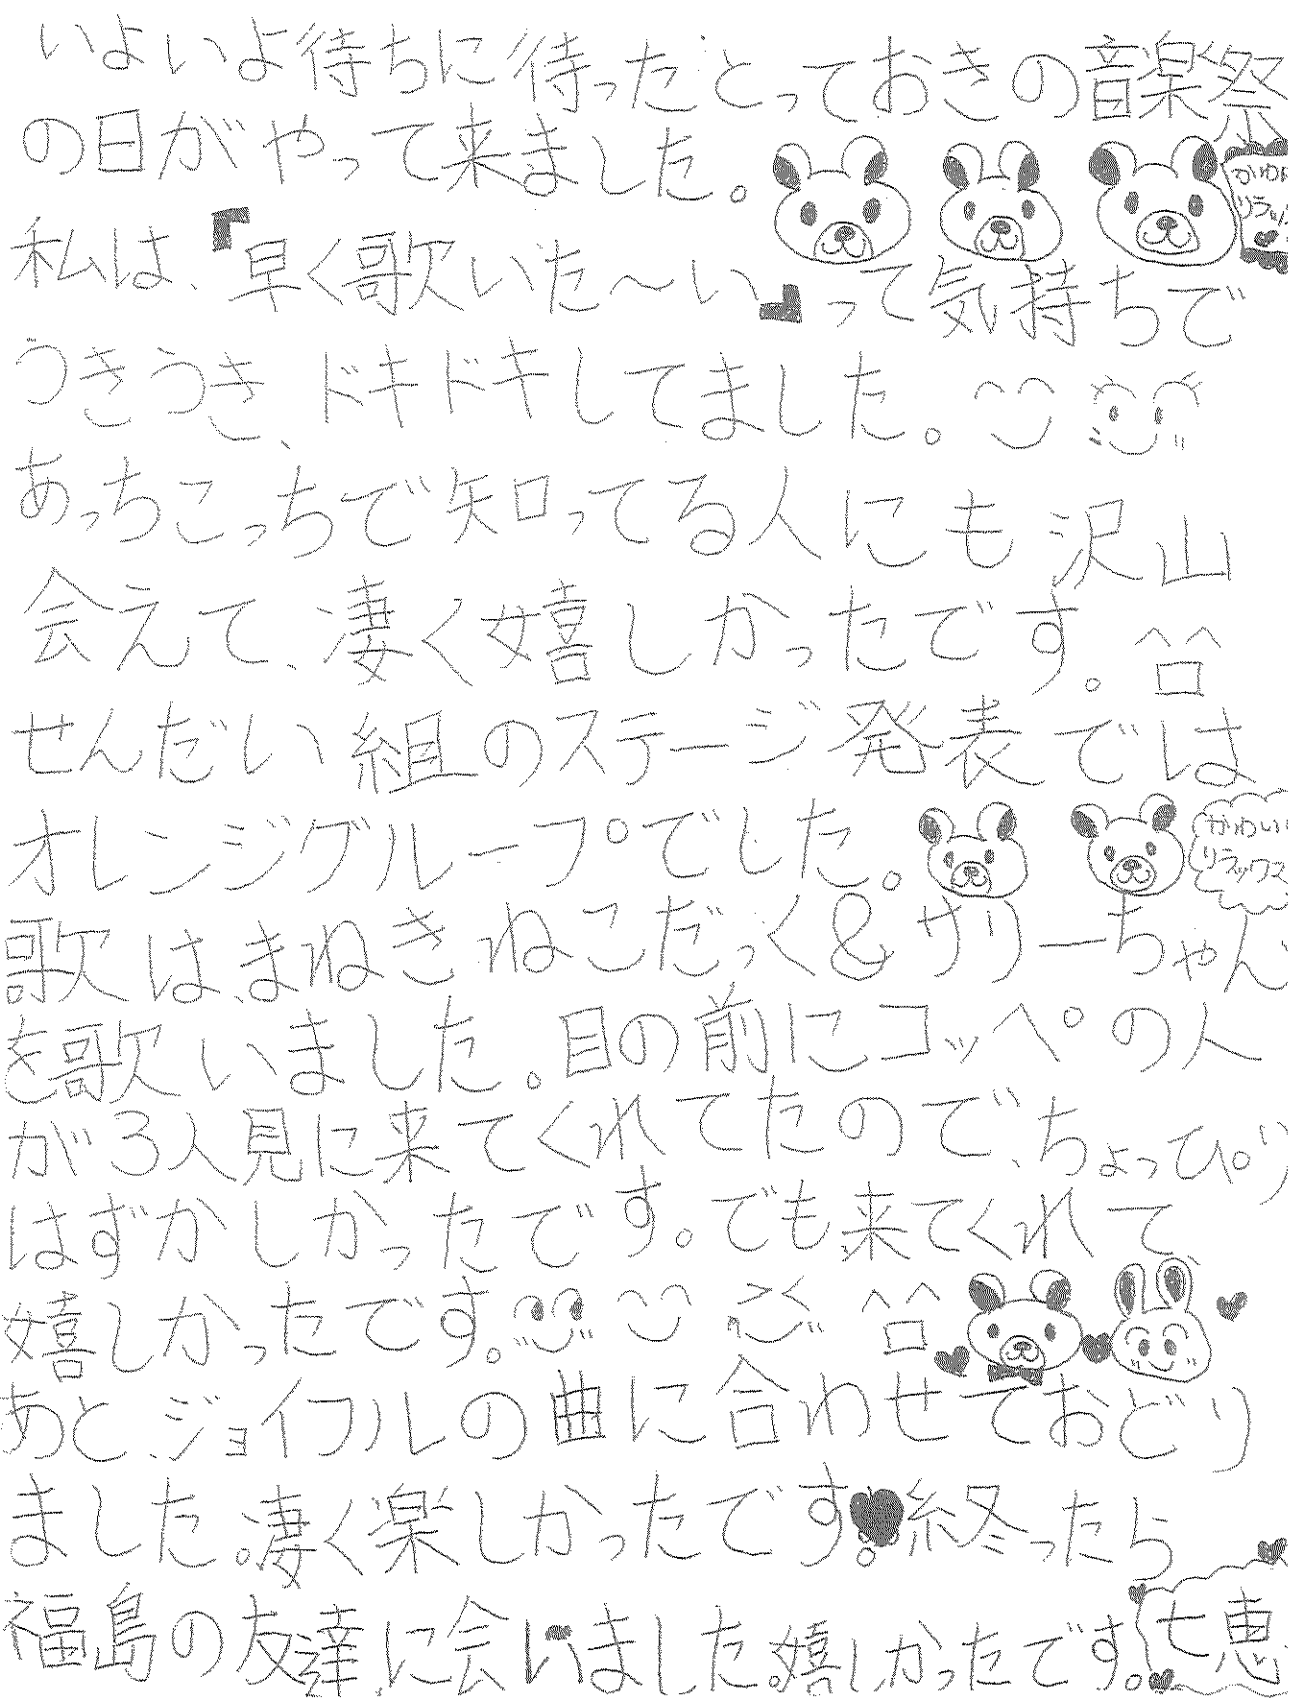 いよいよ待ちに待ったとっておきの音楽祭
の日がやって来ました。
かわい
リラッ
私は、『早く歌いた〜い』って気持ちで
うきうき、ドキドキしてました。
あっちこっちで知ってる人にも沢山
会えて、凄く嬉しかったです。
せんだい組のステージ発表では
オレンジグループでした。
かわいい
リラックス
歌は、まねきねこだっく&サリーちゃん
を歌いました。目の前にコッペの人
が3人見に来てくれてたので、ちょっぴり
はずかしかったです。でも来てくれて、
嬉しかったです。
あと、ジョイフルの曲に合わせておどり
ました。凄く楽しかったです。終ったら
福島の友達に会いました。嬉しかったです。
七恵